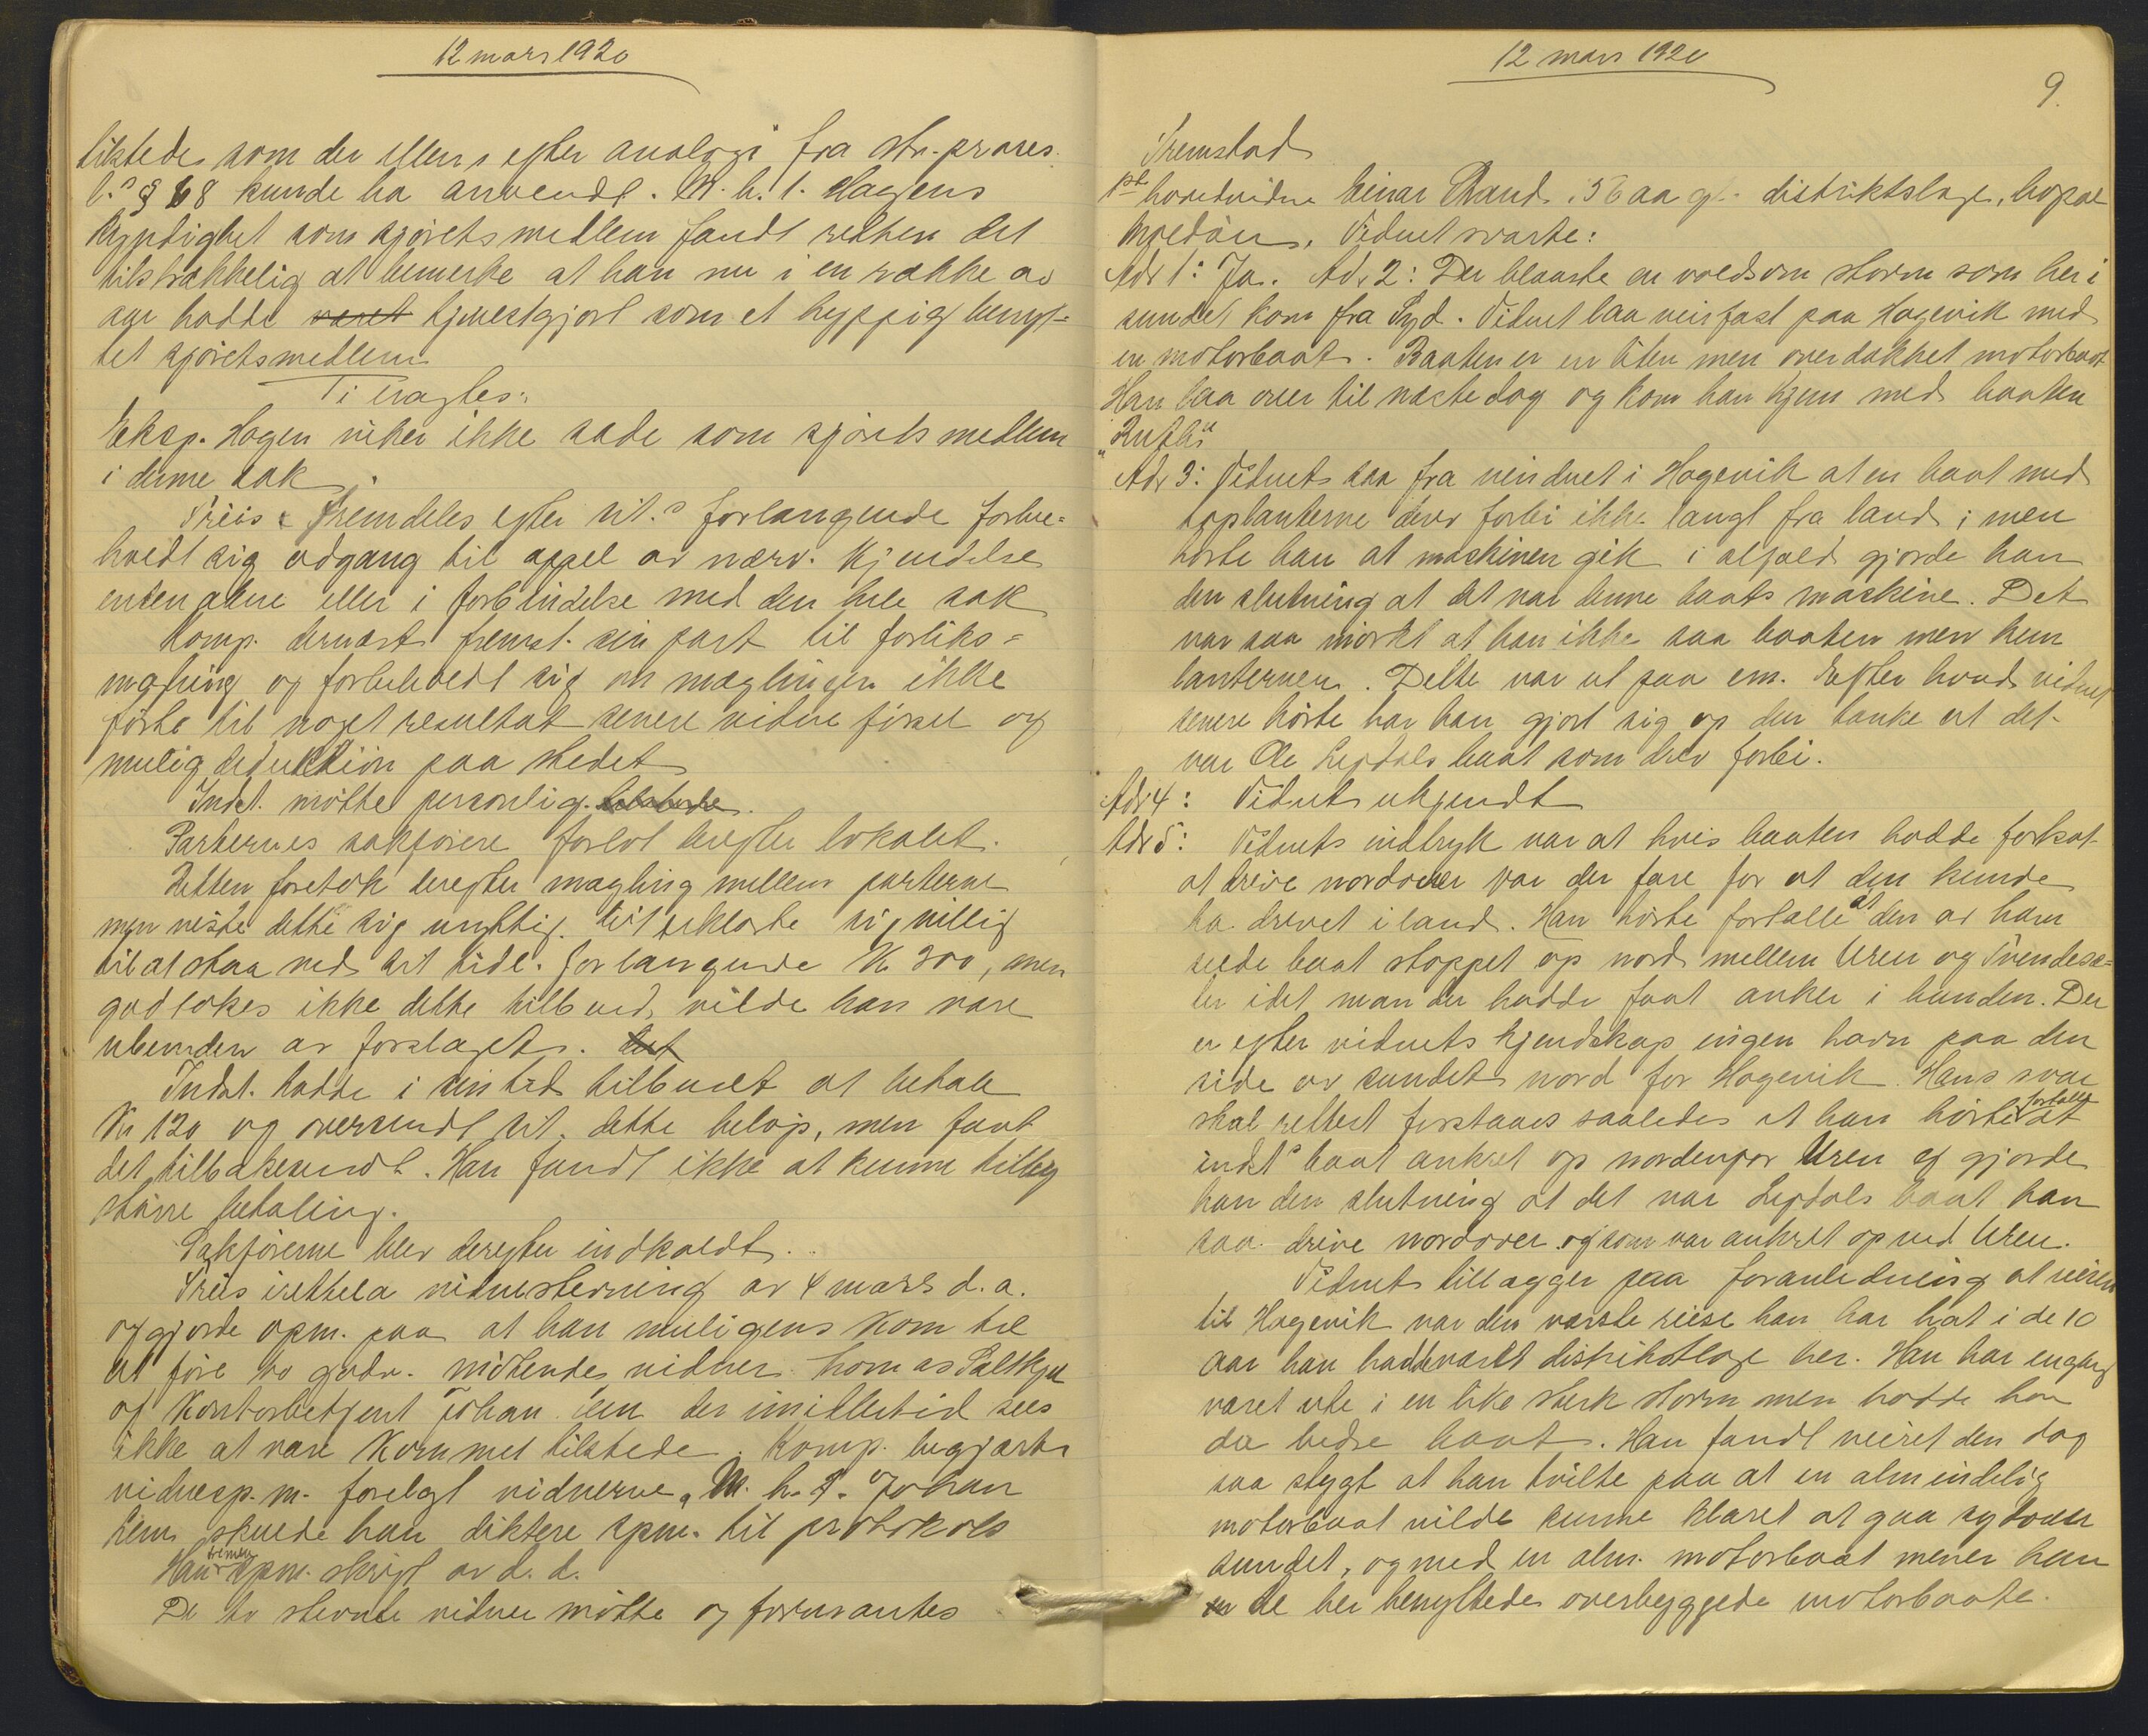 12 mars 1920
tilstede som der ellers efter analogi fra str.-proces.
l.s § 68 kunde ha anvendt. M. h. t. Hagens
kyndighet som sjøretsmedlem fandt retten det
tilstrækkelig at bemerke at han nu i en række av
aar hadde varet tjenestgjort som et hyppig benyt-
tet sjøretsmedlem
Ti eragtes:
Eksp. Hagen viker ikke sæde som sjøretsmedlem
i denne sak.
Friis fremdeles efter cit.s forlangende forbe-
holdt sig adgang til appel av nærv. kjendelse
enten alene eller i forbindelse med den hele sak
Komp. dernæst fremst. sin part til forliks-
mægling og forbeholdt sig om mæglingen ikke
førte til noget resultat senere vidne førsel og
mulig deduktion paa stedet
Indst. møtte personlig.
Parternes sakførere forlot derefter lokalet.
Retten foretok derefter mægling mellem parterne
men viste dette sig unyttig. Cit erklærte sig villig
til at staa ved sit tidl. forlangende Kr 300, men
godtokes ikke dette tilbud vilde han være
ubunden av forslaget.
Indst. hadde i sin tid tilbudt at betale
Kr 120 og oversendt cit. dette beløp, men faat
det tilbakesendt. Han fandt ikke at kunne tilby
større betaling.
Sakførerne blev derefter indkaldt.
Friis irettela vidnestevning av 4 mars d. a.
og gjorde opm. paa at han muligens kom til
at føre to godv. møtende vidner
og Kontorbetjent Johan der imidlertid sees
ikke at være kommet tilstede. Komp. begjærte
vidnesp.m. forelagt vidnerne. M. h. t. Johan
skulde han diktere spm. til protokols
Han fremla spm. skrift av d. d.
De to stevnte vidner møtte og formantes
12 mars 1920
9.
Fremstod
1ste hovedvidne Einar 56 aar gl. distriktslæge, bopæl
Vidnet svarte:
Adr 1: Ja. Adr. 2: Der blaaste en voldsom storm som her i
sundet kom fra Syd. Vidnet laa veirfast paa Hagevik med
en motorbaat. Baaten er en liten men overdækket motorbaat
Han laa over til næste dag og kom han hjem med baaten
"Ruth"
Adr 3: Vidnet saa fra vinduet i Hagevik at en baat med
toplanterne drev forbi ikke langt fra land; men
hørte han at maskinen gik i alfald gjorde han
den slutning at det var denne baats maskine. Det
var saa mørkt at han ikke saa baaten men kun
lanternen. Dette var ut paa em. Efter hvad vidnet
senere hørte har han gjort sig op den tanke at det
var Ole Lepdals baat som drev forbi.
Adr 4: Vidnet ukjendt
Adr 5: Vidnets indtryk var at hvis baaten hadde fortsat
at drive nordover var der fare for at den kunde
ha drevet i land. Han hørte fortalle at den av ham
seede baat stoppet op nord mellem Uren og Svendesæ-
ter idet man der hadde faat anker i bunden. Der
er efter vidnets kjendskap ingen havn paa den
side av sundet nord for Hagevik. Hans svar
skal rettest forstaaes saaledes at han hørte fortalle at
indst.s baat ankret op nordenfor Uren og gjorde
han den slutning at det var Lepdals baat han
saa drive nordover og som var ankret op ved Uren.
Vidnet tillægger paa foranledning at reisen
til Hagevik var den værste reise han har hat i de 10
aar han hadde været distriktslæge her. Han har engang
været ute i en like sterk storm men hadde han
da bedre baat. Han fandt veiret den dag
saa stygt at han tvilte paa at en almindelig
motorbaat vilde kunne klaret at gaa sydover
sundet, og med en alm. motorbaat mener han
de her benyttede overbyggede motorbaate.